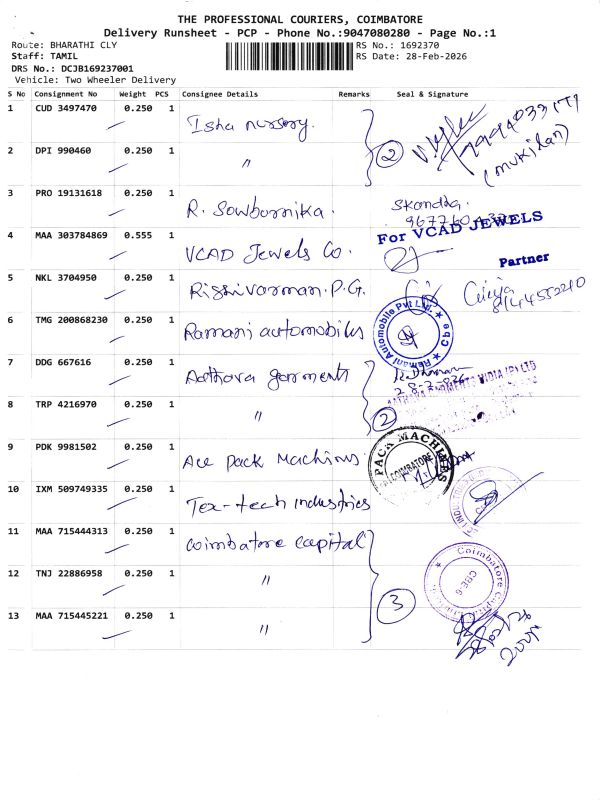 THE PROFESSIONAL COURIERS, COIMBATORE
Delivery Runsheet - PCP - Phone No.:9047080280 - Page No.:1
Route: BHARATHI CLY
RS No.: 1692370
Staff: TAMIL
RS Date: 28-Feb-2026
DRS No.: DCJB169237001
Vehicle: Two Wheeler Delivery
S No Consignment No Weight PCS Consignee Details Remarks Seal & Signature
1 CUD 3497470 0.250 1 Isha nursery.
2 DPI 990460 0.250 1 "
2
(mukilan)
3 PRO 19131618 0.250 1 R. Sowbarnika. Skandha.
4 MAA 303784869 0.555 1 VCAD Jewels Co. For VCAD JEWELS
Partner
5 NKL 3704950 0.250 1 Rishivarman. P.G.
6 TMG 200868230 0.250 1 Ramani automobiles
Ramani Automobile Pvt Ltd. Cbe
7 DDG 667616 0.250 1 Aathava garments
8 TRP 4216970 0.250 1 "
2
9 PDK 9981502 0.250 1 Ace Pack Machines
PACK MACHINES
COIMBATORE
10 IXM 509749335 0.250 1 Tex-tech industries
11 MAA 715444313 0.250 1 Coimbatore capital
12 TNJ 22886958 0.250 1 "
Coimbatore Capital
CBE-6
13 MAA 715445221 0.250 1 "
3